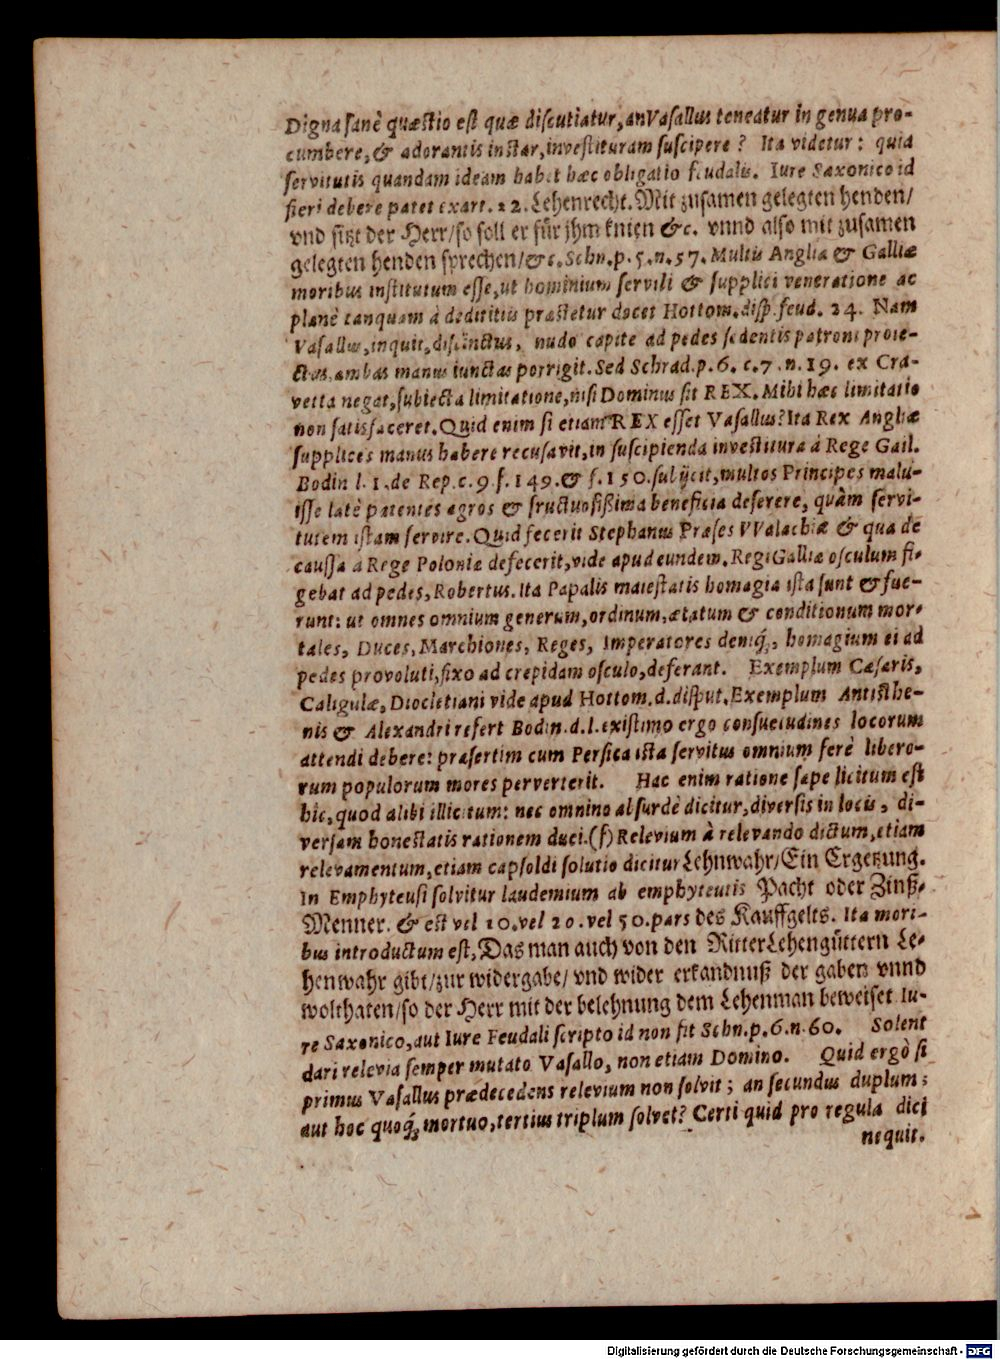 Digna sanè quæstio est quæ discutiatur, an Vasallus teneatur in genua pro-
cumbere, & adorantis instar, investituram suscipere? Ita videtur: quia
servitutis quandam ideam habet hæc obligatio feudalis. Iure Saxonico id
fieri debere patet ex art. 22. Lehenrecht. Mit zusamen gelegten henden/
vnd sitzt der Herr/so soll er für jhm knien &c. vnnd also mit zusamen
gelegten henden sprechen/&c. Schn. p. 5. n. 57. Multis Angliæ & Galliæ
moribus institutum esse, ut hominium servili & supplici veneratione ac
planè tanquam à dedititiis præstetur docet Hottom. disp. feud. 24. Nam
Vasallus, inquit, discinctus, nudo capite ad pedes sedentis patroni proie-
ctus, ambas manus iunctas porrigit. Sed Schrad. p. 6. c. 7. n. 19. ex Cra-
vetta negat, subiecta limitatione, nisi Dominus sit REX. Mihi hæc limitatio
non satisfaceret. Quid enim si etiam REX esset Vasallus? Ita Rex Angliæ
supplices manus habere recusavit, in suscipienda investitura á Rege Gail.
Bodin l. 1. de Rep. c. 9 f. 149. & f. 150. subijcit, multos Principes malu-
isse latè patentes agros & fructuosißima beneficia deserere, quàm servi-
tutem istam servire. Quid fecerit Stephanus Præses VValachiæ & qua de
caussa á Rege Poloniæ defecerit, vide apud eundem. Regi Galliæ osculum fi-
gebat ad pedes, Robertus. Ita Papalis maiestatis homagia ista sunt & fue-
runt: ut omnes omnium generum, ordinum, ætatum & conditionum mor-
tales, Duces, Marchiones, Reges, Imperatores deniq́;, homagium ei ad
pedes provoluti, fixo ad crepidam osculo, deferant. Exemplum Cæsaris,
Caligulæ, Diocletiani vide apud Hottom. d. disput. Exemplum Antisthe-
nis & Alexandri refert Bodin. d. l. existimo ergo consuetudines locorum
attendi debere: præsertim cum Persica ista servitus omnium ferè libero-
rum populorum mores perverterit. Hac enim ratione sæpe licitum est
hic, quod alibi illicitum: nec omnino absurdè dicitur, diversis in locis, di-
versam honestatis rationem duci. (f) Relevium à relevando dictum, etiam
relevamentum, etiam capsoldi solutio dicitur Lehnwahr/Ein Ergetzung.
In Emphyteusi solvitur laudemium ab emphyteutis Pacht oder Zinß-
Menner. & est vel 10. vel 20. vel 50. pars des Kauffgelts. Ita mori-
bus introductum est, Das man auch von den RitterLehengüttern Le-
henwahr gibt/zur widergabe/ vnd wider erkandnuß der gaben vnnd
wolthaten/so der Herr mit der belehnung dem Lehenman beweiset Iu-
re Saxonico, aut Iure Feudali scripto id non fit Schn. p. 6. n. 60. Solent
dari relevia semper mutato Vasallo, non etiam Domino. Quid ergò si
primus Vasallus prædecedens relevium non solvit; an secundus duplum;
aut hoc quoq́; mortuo, tertius triplum solvet? Certi quid pro regula dici
nequit.
Digitalisierung gefördert durch die Deutsche Forschungsgemeinschaft - DFG